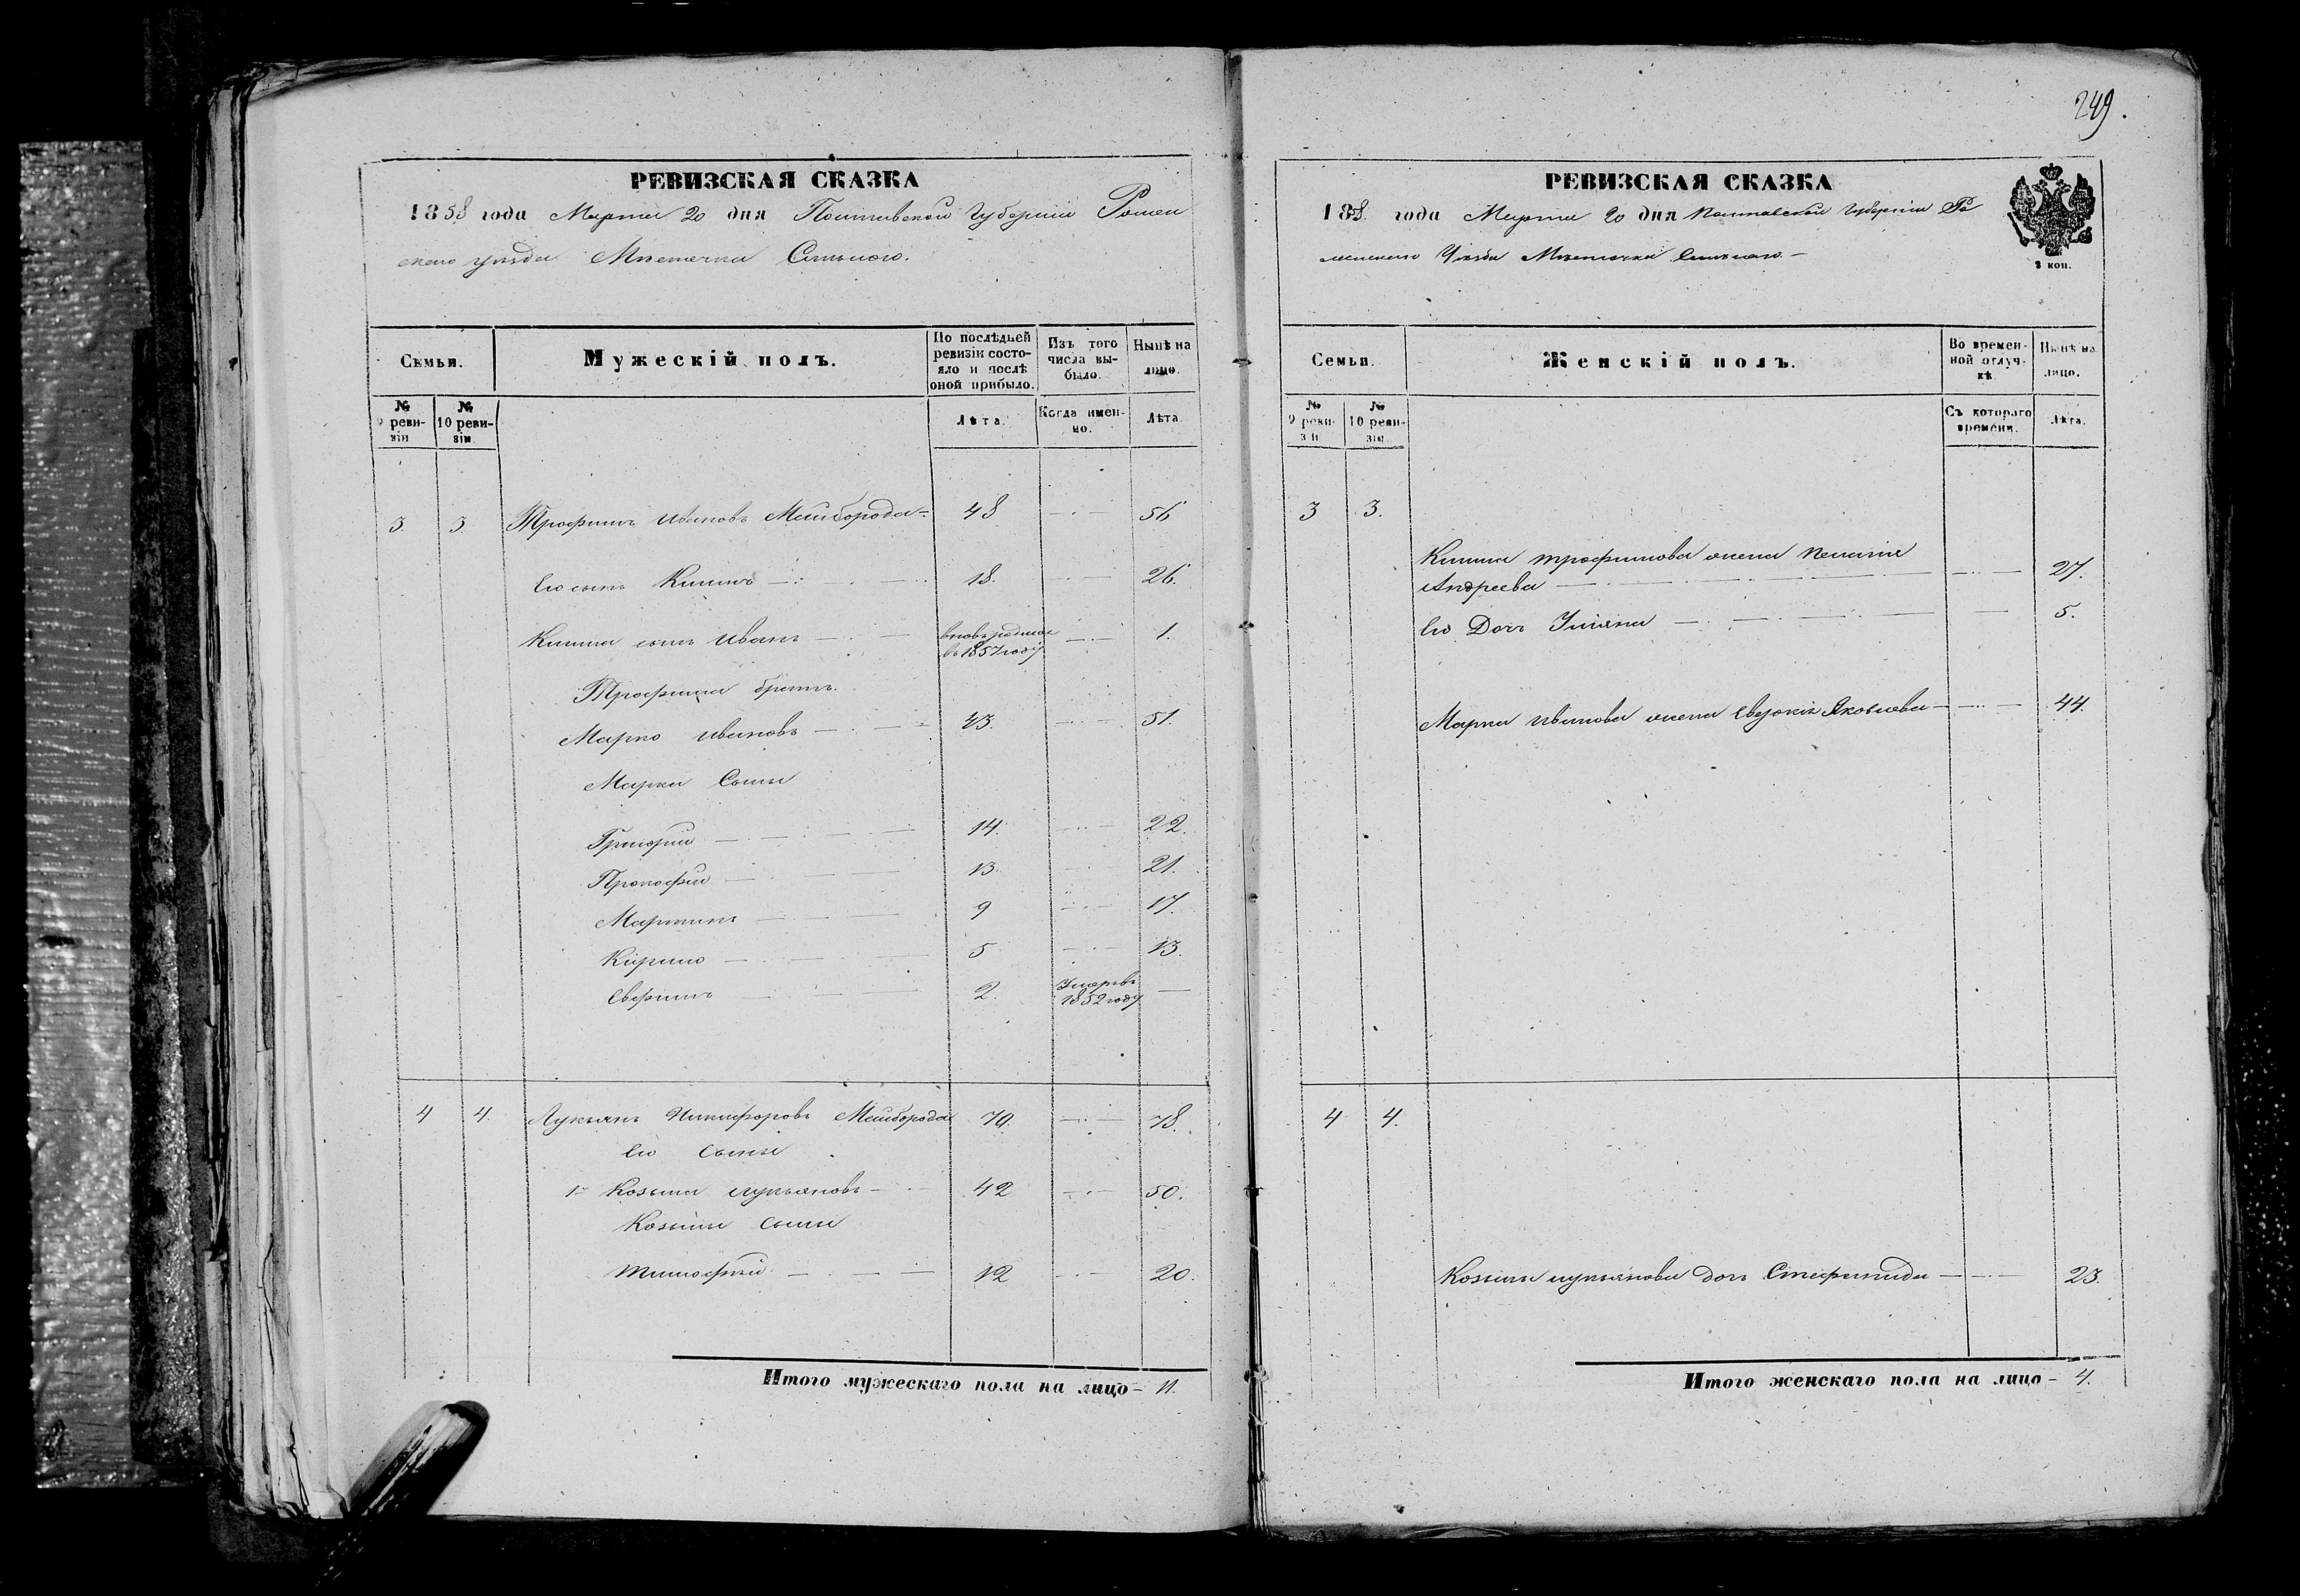 249.
РЕВИЗСКАЯ СКАЗКА
1858 года Марта 20 дня Полтавской Губерніи Ромен
скаго уѣзда Мѣстечка Смѣлого.
Семьи.
Мужескій полъ.
По послѣдней
ревизіи состо-
яло и послѣ
оной прибыло.
Изъ того
числа вы-
было.
Нынѣ на
лицо.
№
9 реви-
зіи
№
10 реви-
зіи.
Лѣта.
Когда имен-
но.
Лѣта.
3. 3. Трофимъ Ивановъ Майборода 48 56
Его сынъ Климъ 18. 26.
Клима сынъ Иванъ вновь родился 1.
въ 1857 году
Трофима братъ.
Марко Ивановъ 43. 51.
Марка Сыны
Григорій 14. 22.
Прокофій 13. 21.
Мартинъ 9 17.
Кирило 5 13.
2. Умеръ въ
1852 году
4 4. Лукьянъ Никифоровъ Майборода 70. 78.
Его Сыны
1й Козьма Лукьяновъ 42 50.
Козьмы Сыны
Тимофѣй 12 20.
Итого мужескаго пола на лицо - 11.
РЕВИЗСКАЯ СКАЗКА
1858 года Марта 20 дня Полтавской Губерніи Ро
менскаго Уѣзда Мѣстечка Смѣлого.
3 коп.
Семьи.
Женскій полъ.
Во времен-
ной отлуч-
кѣ.
Нынѣ на
лицо.
№
9 реви-
зіи
№
10 реви-
зіи.
Съ котораго
времени.
Лѣта.
3 3.
Клима Трофимова жена
Андреева 27.
Его Дочь Уліяна 5.
Марка Иванова жена Евдокія Яковлева 44.
4 4.
Козьмы Лукьянова дочь Стефанида 23.
Итого женскаго пола на лицо - 4.